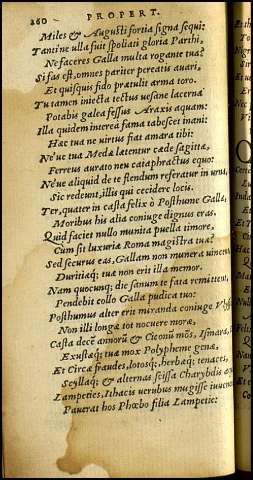 260 PROPERT.
Miles & Augusti fortia signa sequi:
Tantine ulla fuit spoliati gloria Parthi,
Ne faceres Galla multa rogante tua?
Si fas est, omnes pariter pereatis auari,
Et quisquis fido prætulit arma toro.
Tu tamen iniecta tectus uesane lacerna
Potabis galea fessus Araxis aquam:
Illa quidem interea fama tabescet inani:
Hæc tua ne uirtus fiat amara tibi:
Néue tua Medæ lætentur cæde sagittæ,
Ferreus aurato neu cataphractus equo:
Néue aliquid de te flendum referatur in urna,
Sic redeunt, illis qui cecidere locis.
Ter, quater in casta felix ô Posthume Galla,
Moribus his alia coniuge dignus eras.
Quid faciet nullo munita puella timore,
Cum sit luxuriæ Roma magistra tuæ?
Sed securus eas, Gallam non munera uincent,
Duritiæq; tuæ non erit illa memor.
Nam quocunq; die saluum te fata remittent,
Pendebit collo Galla pudica tuo:
Posthumus alter erit miranda coniuge
Non illi longæ tot nocuere moræ,
Castra decē annorū & Ciconū mōs, Ismara,
Exustæq; tuæ mox Polypheme genæ,
Et Circæ fraudes, lotosq; herbæq; tenaces,
Scyllaq; & alternas scissa Charybdis
Lampeties, Ithacis uerubus mugisse iuuencos
Pauerat hos Phœbo filia Lampetie: